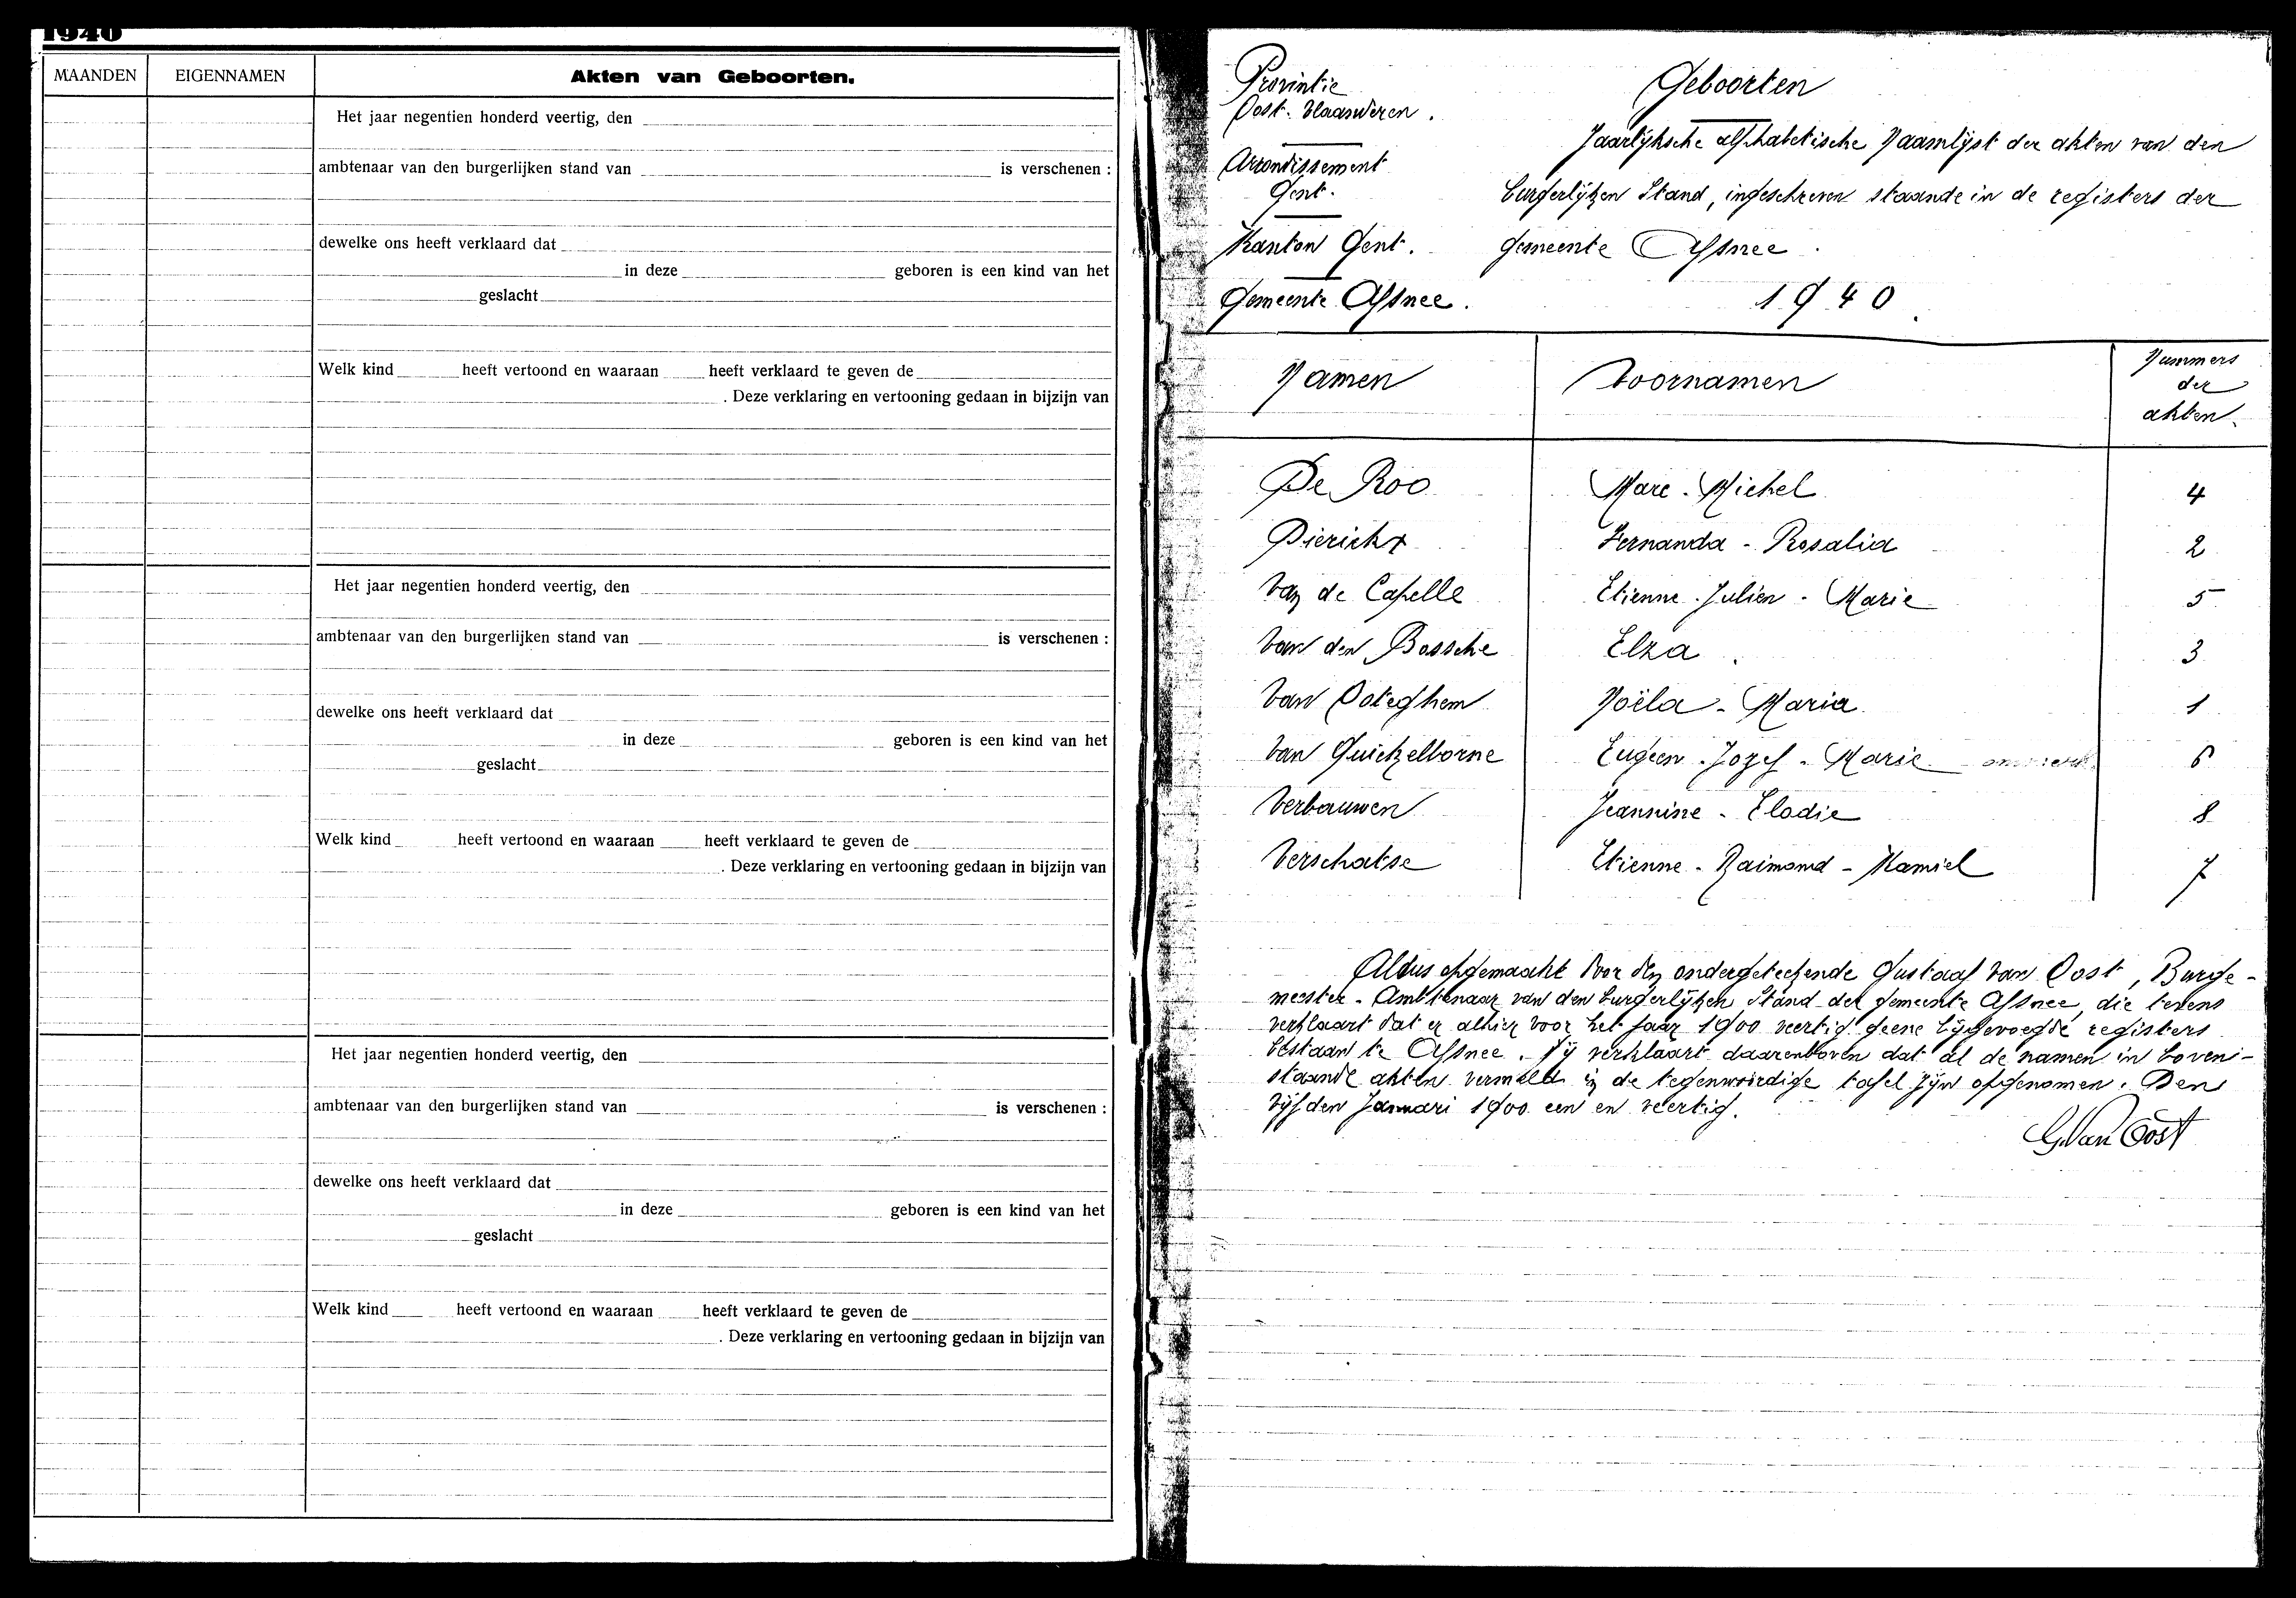 1940
MAANDEN EIGENNAMEN Akten van Geboorten.
Het jaar negentien honderd veertig, den
ambtenaar van den burgerlijken stand van is verschenen :
dewelke ons heeft verklaard dat
in deze geboren is een kind van het
geslacht
Welk kind heeft vertoond en waaraan heeft verklaard te geven de
. Deze verklaring en vertooning gedaan in bijzijn van
Het jaar negentien honderd veertig, den
ambtenaar van den burgerlijken stand van is verschenen :
dewelke ons heeft verklaard dat
in deze geboren is een kind van het
geslacht
Welk kind heeft vertoond en waaraan heeft verklaard te geven de
. Deze verklaring en vertooning gedaan in bijzijn van
Het jaar negentien honderd veertig, den
ambtenaar van den burgerlijken stand van is verschenen :
dewelke ons heeft verklaard dat
in deze geboren is een kind van het
geslacht
Welk kind heeft vertoond en waaraan heeft verklaard te geven de
. Deze verklaring en vertooning gedaan in bijzijn van
Provintie
Oost-Vlaanderen.
Arrondissement
Gent.
Kanton Gent.
Gemeente Afsnee.
Geboorten
Jaarlijksche alphabetische Naamlijst der akten van den
burgerlijken Stand, ingeschreven staande in de registers der
gemeente Afsnee.
1940.
Namen Voornamen Nummers
der
akten.
De Roo Marc - Michel 4
Dierickx Fernanda - Rosalia 2
Van de Capelle Etienne - Julien - Marie 5
Van den Bossche Elza 3
Van Ooteghem Noëla - Maria 1
Van Quickelborne Eugeen - Jozef - Marie 6
Verbauwen Jeannine - Elodie 8
Verschatse Etienne - Raimond - Kamiel 7
Aldus opgemaakt door den ondergeteekende Gustaaf Van Oost, Burge-
meester - Ambtenaar van den burgerlijken Stand der gemeente Afsnee, die tevens
verklaart dat er alhier voor het jaar 1900 veertig geene bijgevoegde registers
bestaan te Afsnee. Hij verklaart daarenboven dat al de namen in boven-
staande akten vermeld in de tegenwoordige tafel zijn opgenomen. Den
vijfden Januari 1900 een en veertig.
G. Van Oost